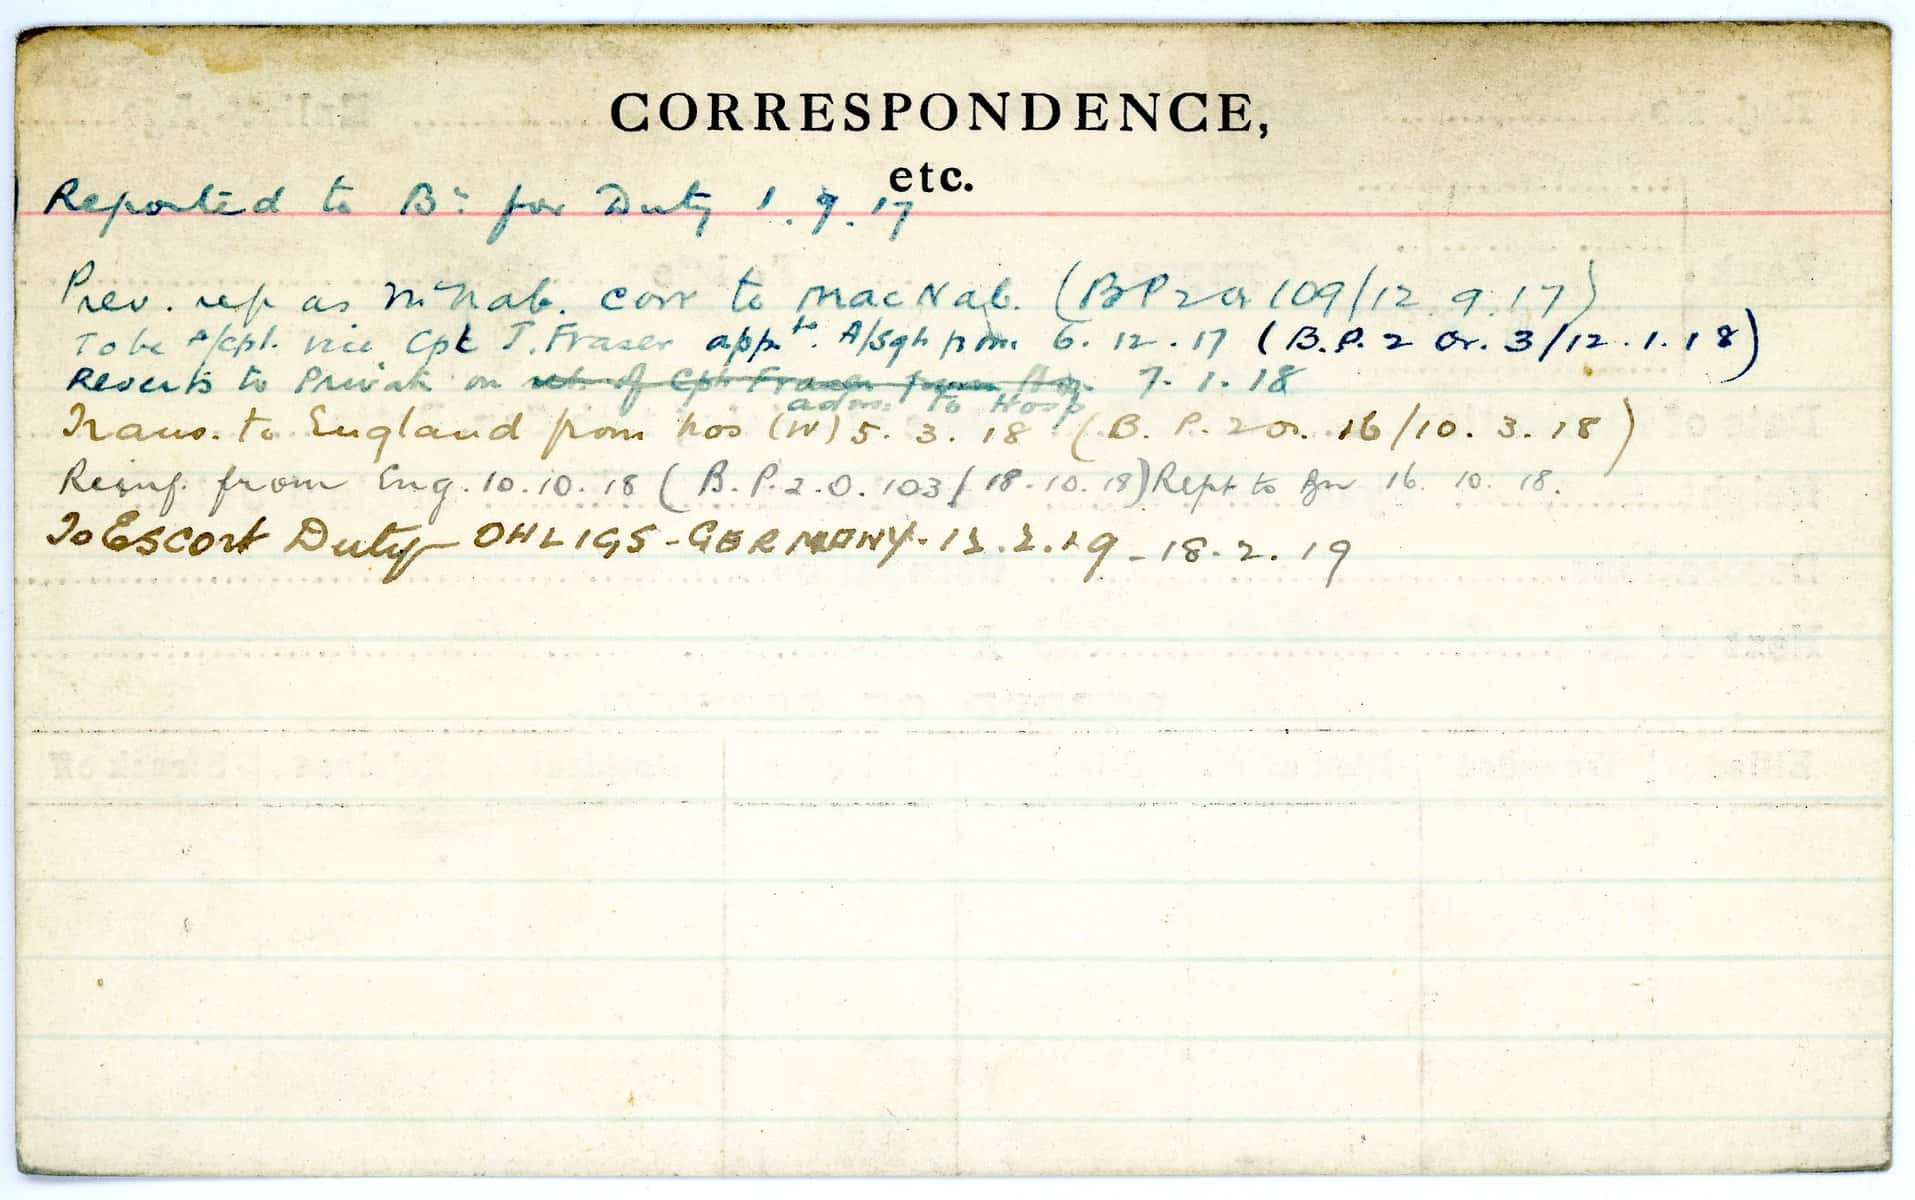 CORRESPONDENCE,
etc.
Reported to Bn for Duty 1.9.17
Prev. rep as McNab. corr to MacNab. (BP2 Or 109/12.9.17)
To be A/Cpl. vice Cpl J. Fraser appt to A/Sgt from 6.12.17 (B.P.2 Or. 3/12.1.18)
Reverts to Private on ret. of Cpl Fraser from Hos. 7.1.18
adm. to Hosp
Trans. to England from hos (W) 5.3.18 (B.P.2 Or. 16/10.3.18)
Reinf. from Eng. 10.10.18 (B.P.2.O.103/18.10.18) Rept to Bn 16.10.18.
To Escort Duty OHLIGS-GERMANY. 13.2.19-18.2.19